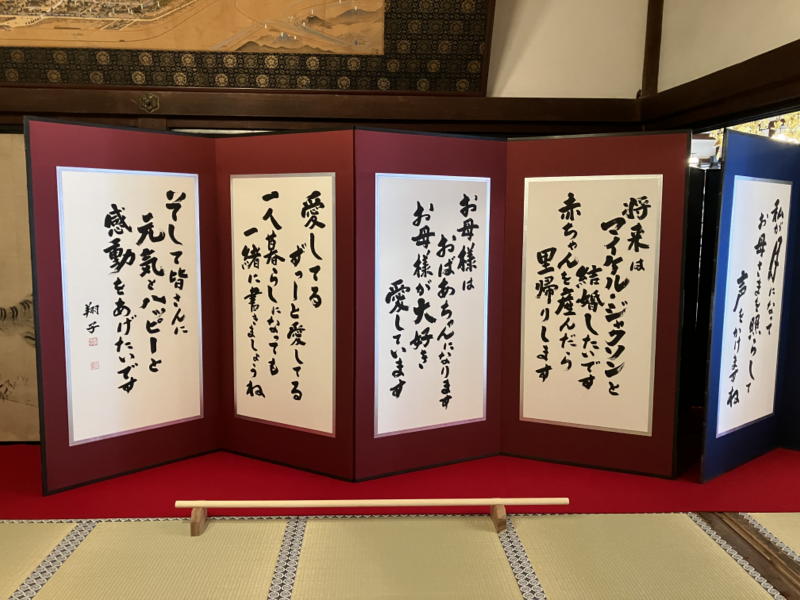 私が月になって
お母さまを照らして
声をかけますね
将来は
マイケル・ジャクソンと
結婚したいです
赤ちゃんを産んだら
里帰りします
お母様は
おばあちゃんになります
お母様が大好き
愛しています
愛してる
ずっーと愛してる
一人暮らしになっても
一緒に書きましょうね
そして皆さんに
元気とハッピーと
感動をあげたいです
翔子